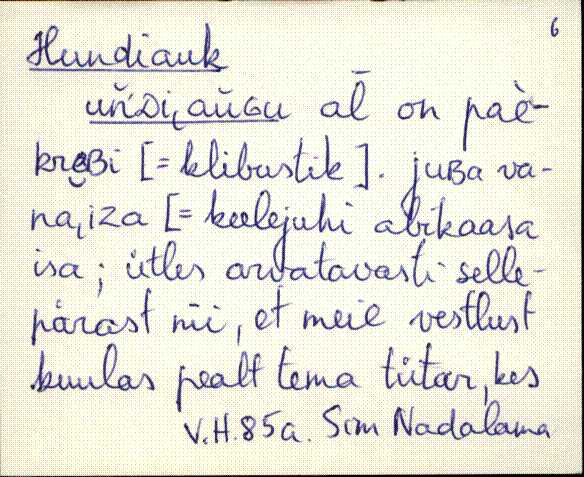 6
Hundiauk
uňDi͜aŭGu al̄ on paè-
kreBi [= klibustik]. juBa va-
na͜iza [= keelejuhi abikaasa
isa; ütles arvatavasti selle-
pärast nii, et meie vestlust
kuulas pealt tema tütar, kes
V.H. 85a. Sim Nadalama